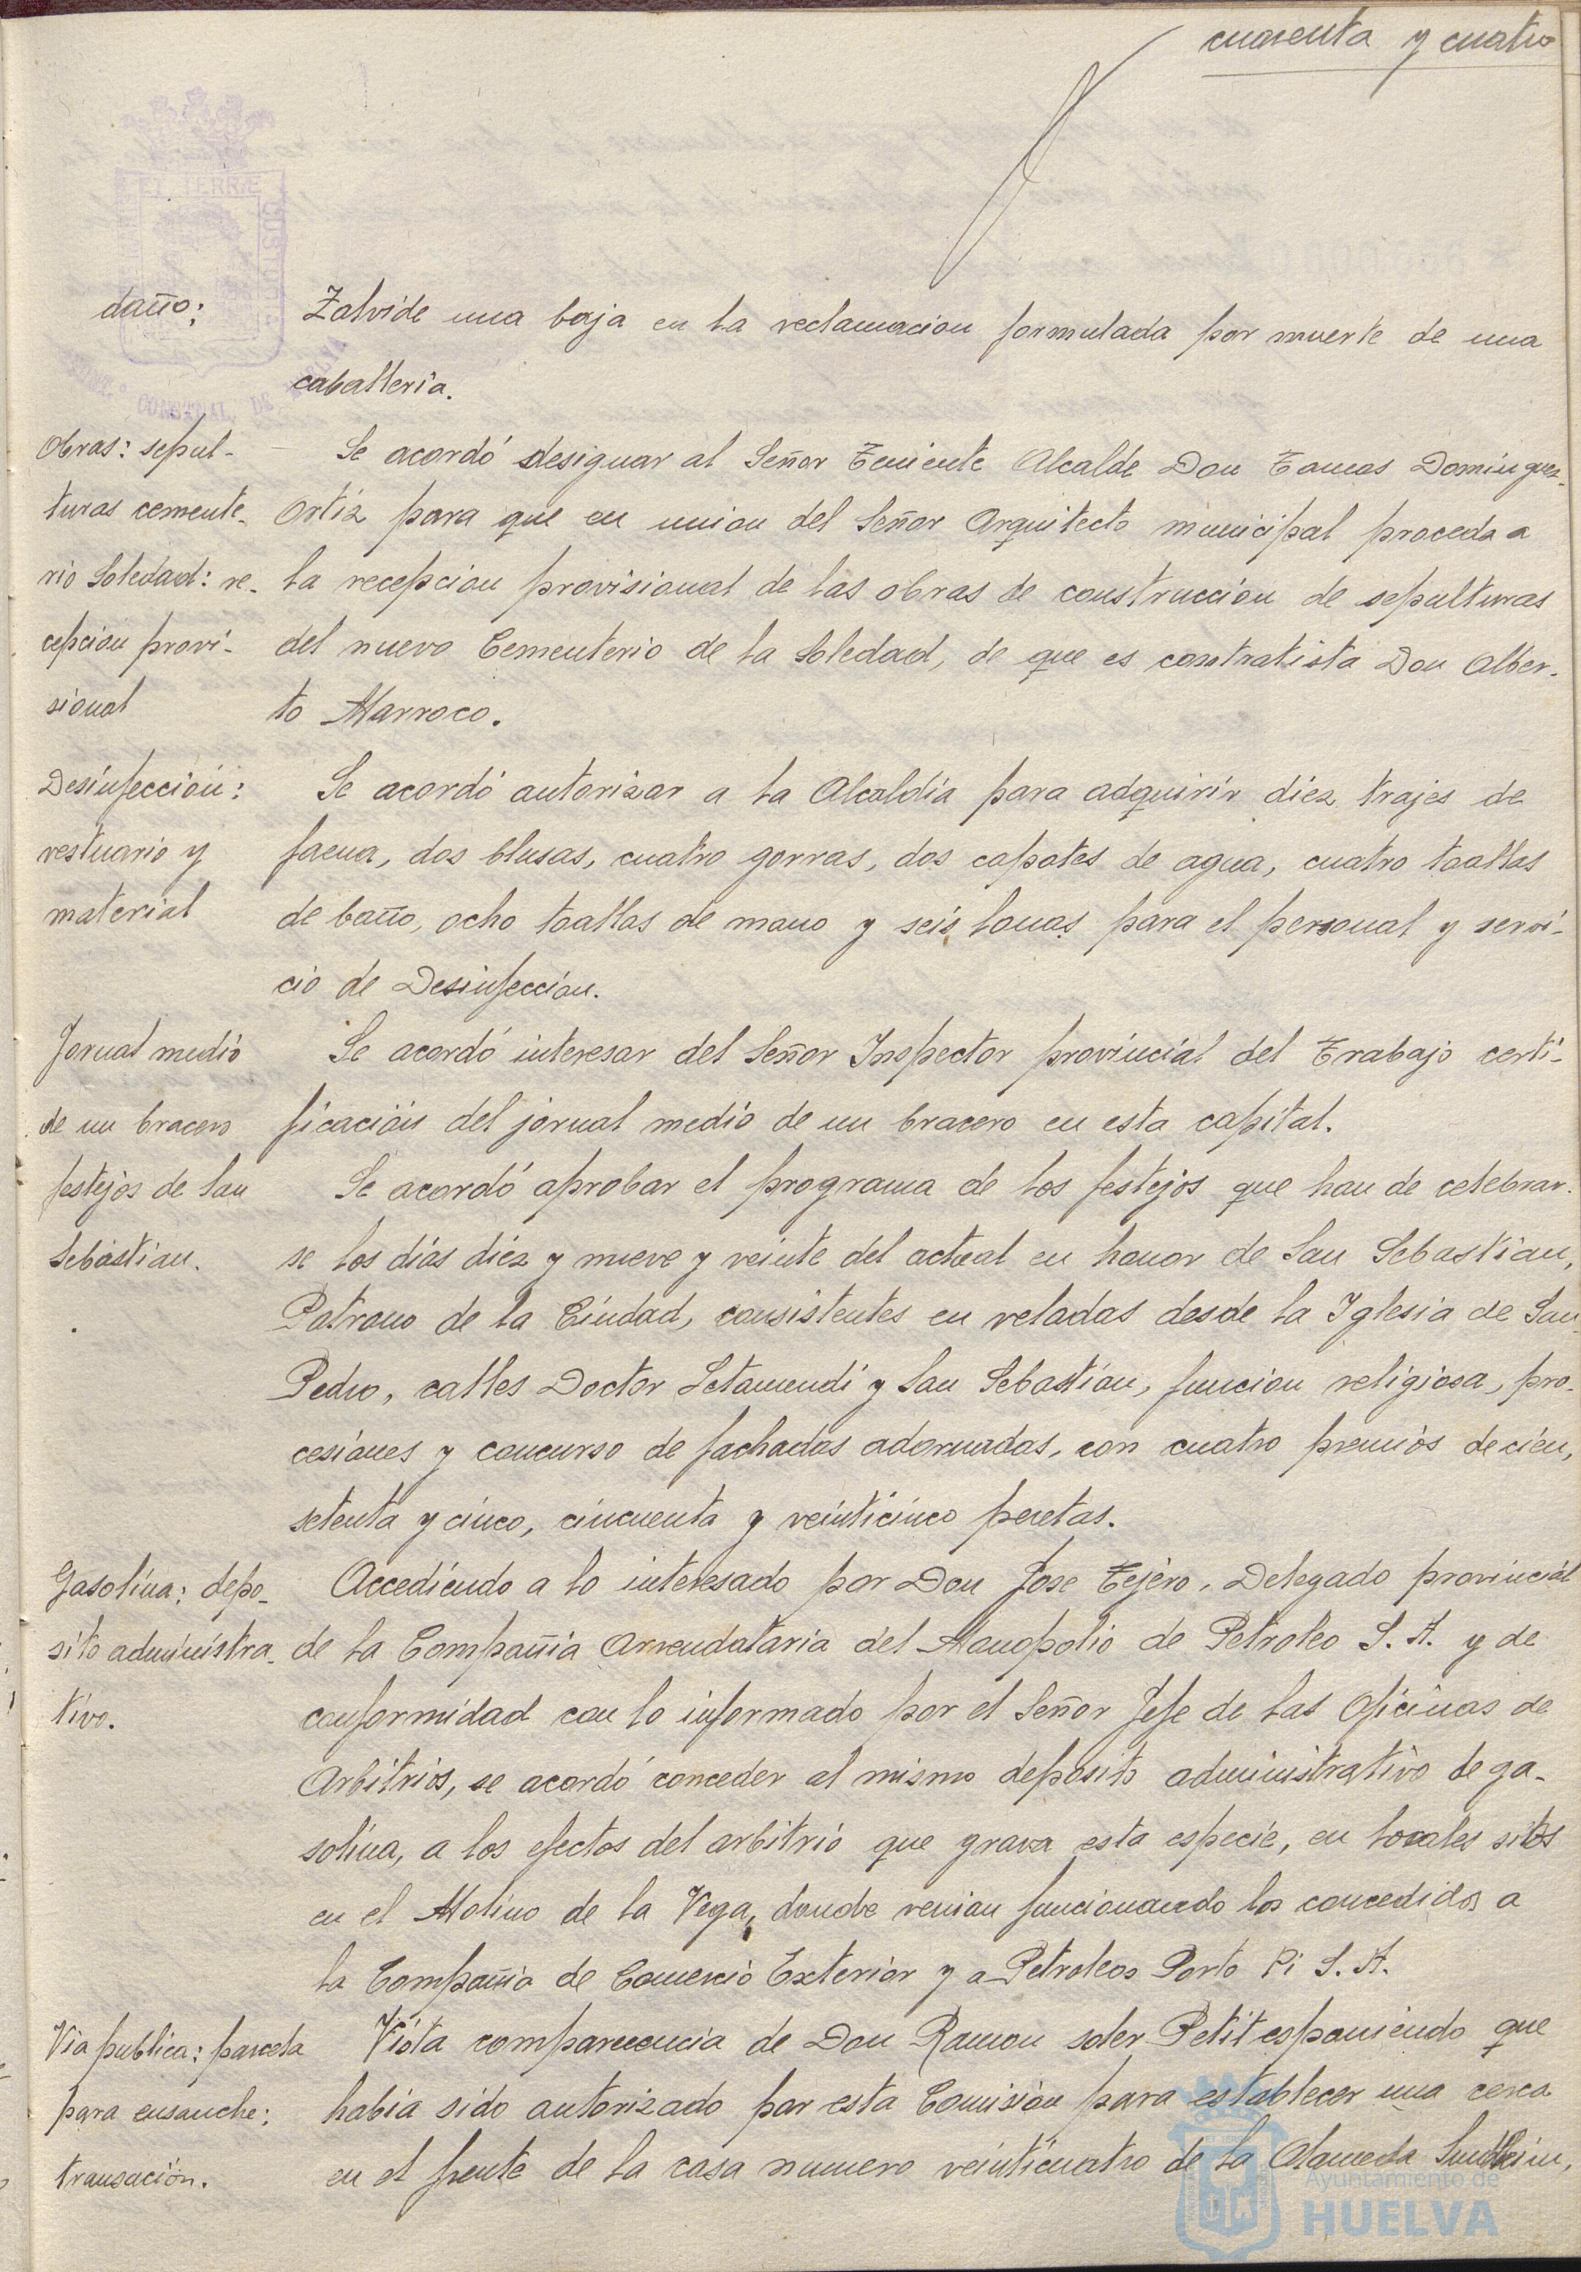 cuarenta y cuatro
daño;
Zalvide una baja en la reclamacion formulada por muerte de una
caballeria.
Obras: sepul-
turas cemente-
rio Soledad: re-
cepcion provi-
sional
Se acordó designar al Señor Teniente Alcalde Don Tomas Dominguez
Ortiz para que en union del Señor Arquitecto municipal proceda a
la recepcion provisional de las obras de construccion de sepulturas
del nuevo Cementerio de la Soledad, de que es contratista Don Alber-
to Marroco.
Desinfección:
vestuario y
material
Se acordó autorizar a la Alcaldía para adquirir diez trajes de
faena, dos blusas, cuatro gorras, dos capotes de agua, cuatro toallas
de baño, ocho toallas de mano y seis lonas para el personal y servi-
cio de Desinfeccion.
Jornal medio
de un bracero
Se acordó interesar del Señor Inspector provincial del Trabajo certi-
ficación del jornal medio de un bracero en esta capital.
festejos de San
Sebastian.
Se acordó aprobar el programa de los festejos que han de celebrar-
se los días diez y nueve y veinte del actual en honor de San Sebastian,
Patrono de la Ciudad, consistentes en veladas desde la Iglesia de San
Pedro, calles Doctor Letamendi y San Sebastián, funcion religiosa, pro-
cesiones y concurso de fachadas adornadas, con cuatro premios de cien,
setenta y cinco, cincuenta y veinticinco pesetas.
Gasolina: depo-
sito administra-
tivo.
Accediendo a lo interesado por Don Jose Tejero, Delegado provincial
de la Compañia Arrendataria del Monopolio de Petroleo S. A. y de
conformidad con lo informado por el Señor Jefe de las Oficinas de
Arbitrios, se acordó conceder al mismo deposito administrativo de ga-
solina, a los efectos del arbitrio que grava esta especie, en locales sitos
en el Molino de la Vega, donde venian funcionando los concedidos a
la Compañia de Comercio Exterior y a Petroleos Porto Pi S. A.
Via publica: parcela
para ensanche:
transación.
Vista comparecencia de Don Ramon soler Petit esponiendo que
habia sido autorizado por esta Comision para establecer una cerca
en el frente de la casa numero veinticuatro de la Alameda Sundheim,
Ayuntamiento de
HUELVA